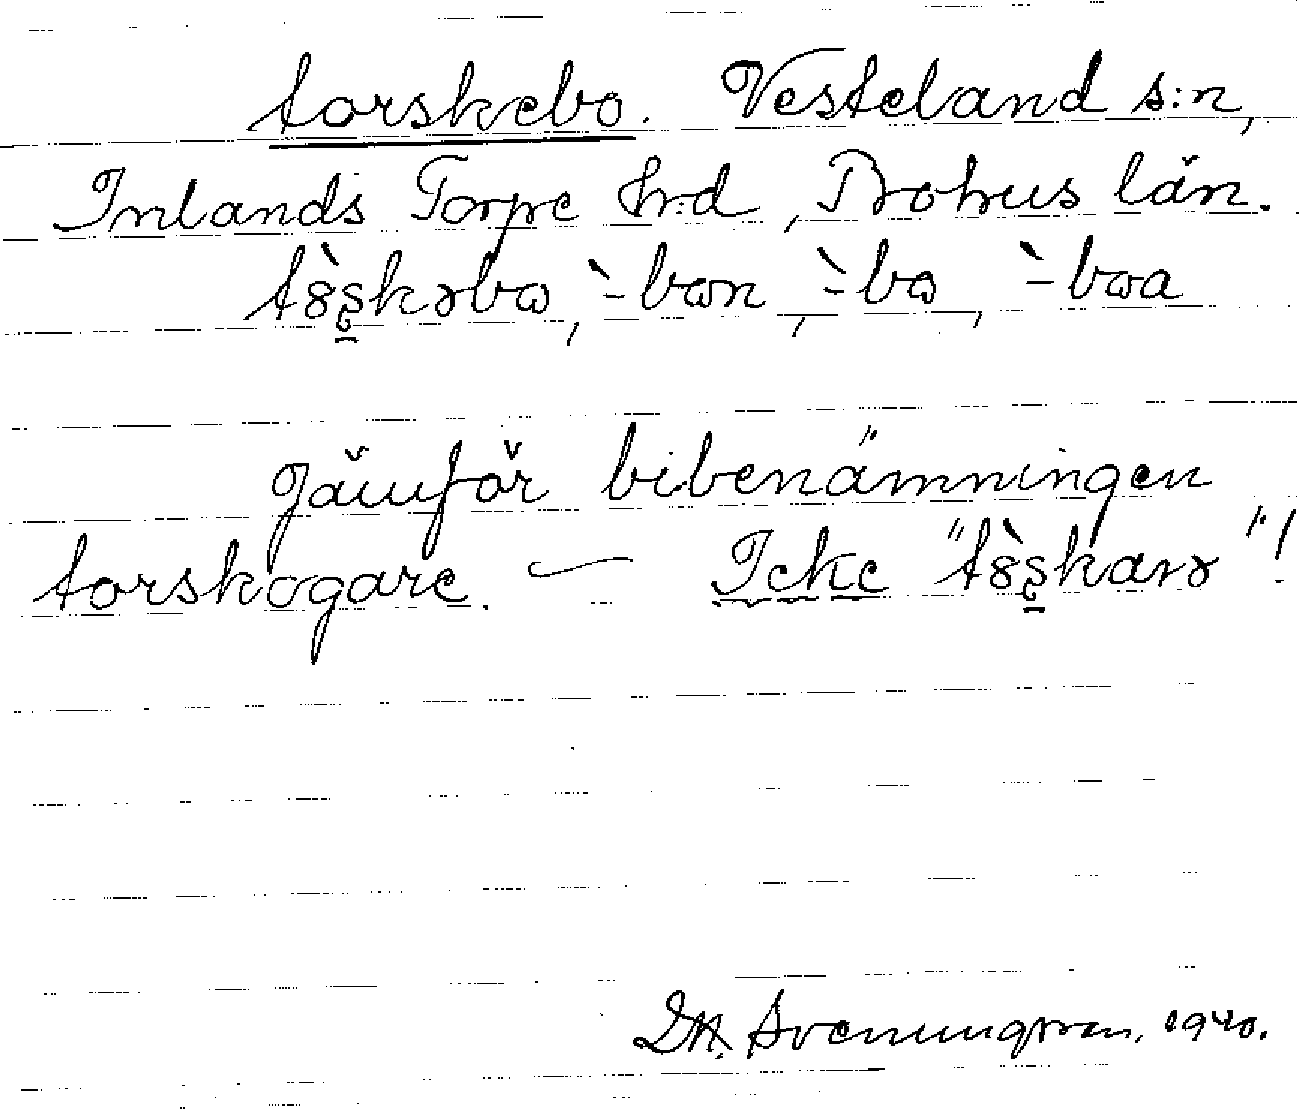 torskebo. Vesteland s:n,
Inlands Torpe hrd, Bohus län.
tȣ̀ʂkɘbɷ, `-bɷn, `-bɷ, `-bɷa
Jämför bibenämningen
torskogare. — Icke "tȣ̀ʂkarɘ"!
D.N. Sveningsson, 1940.